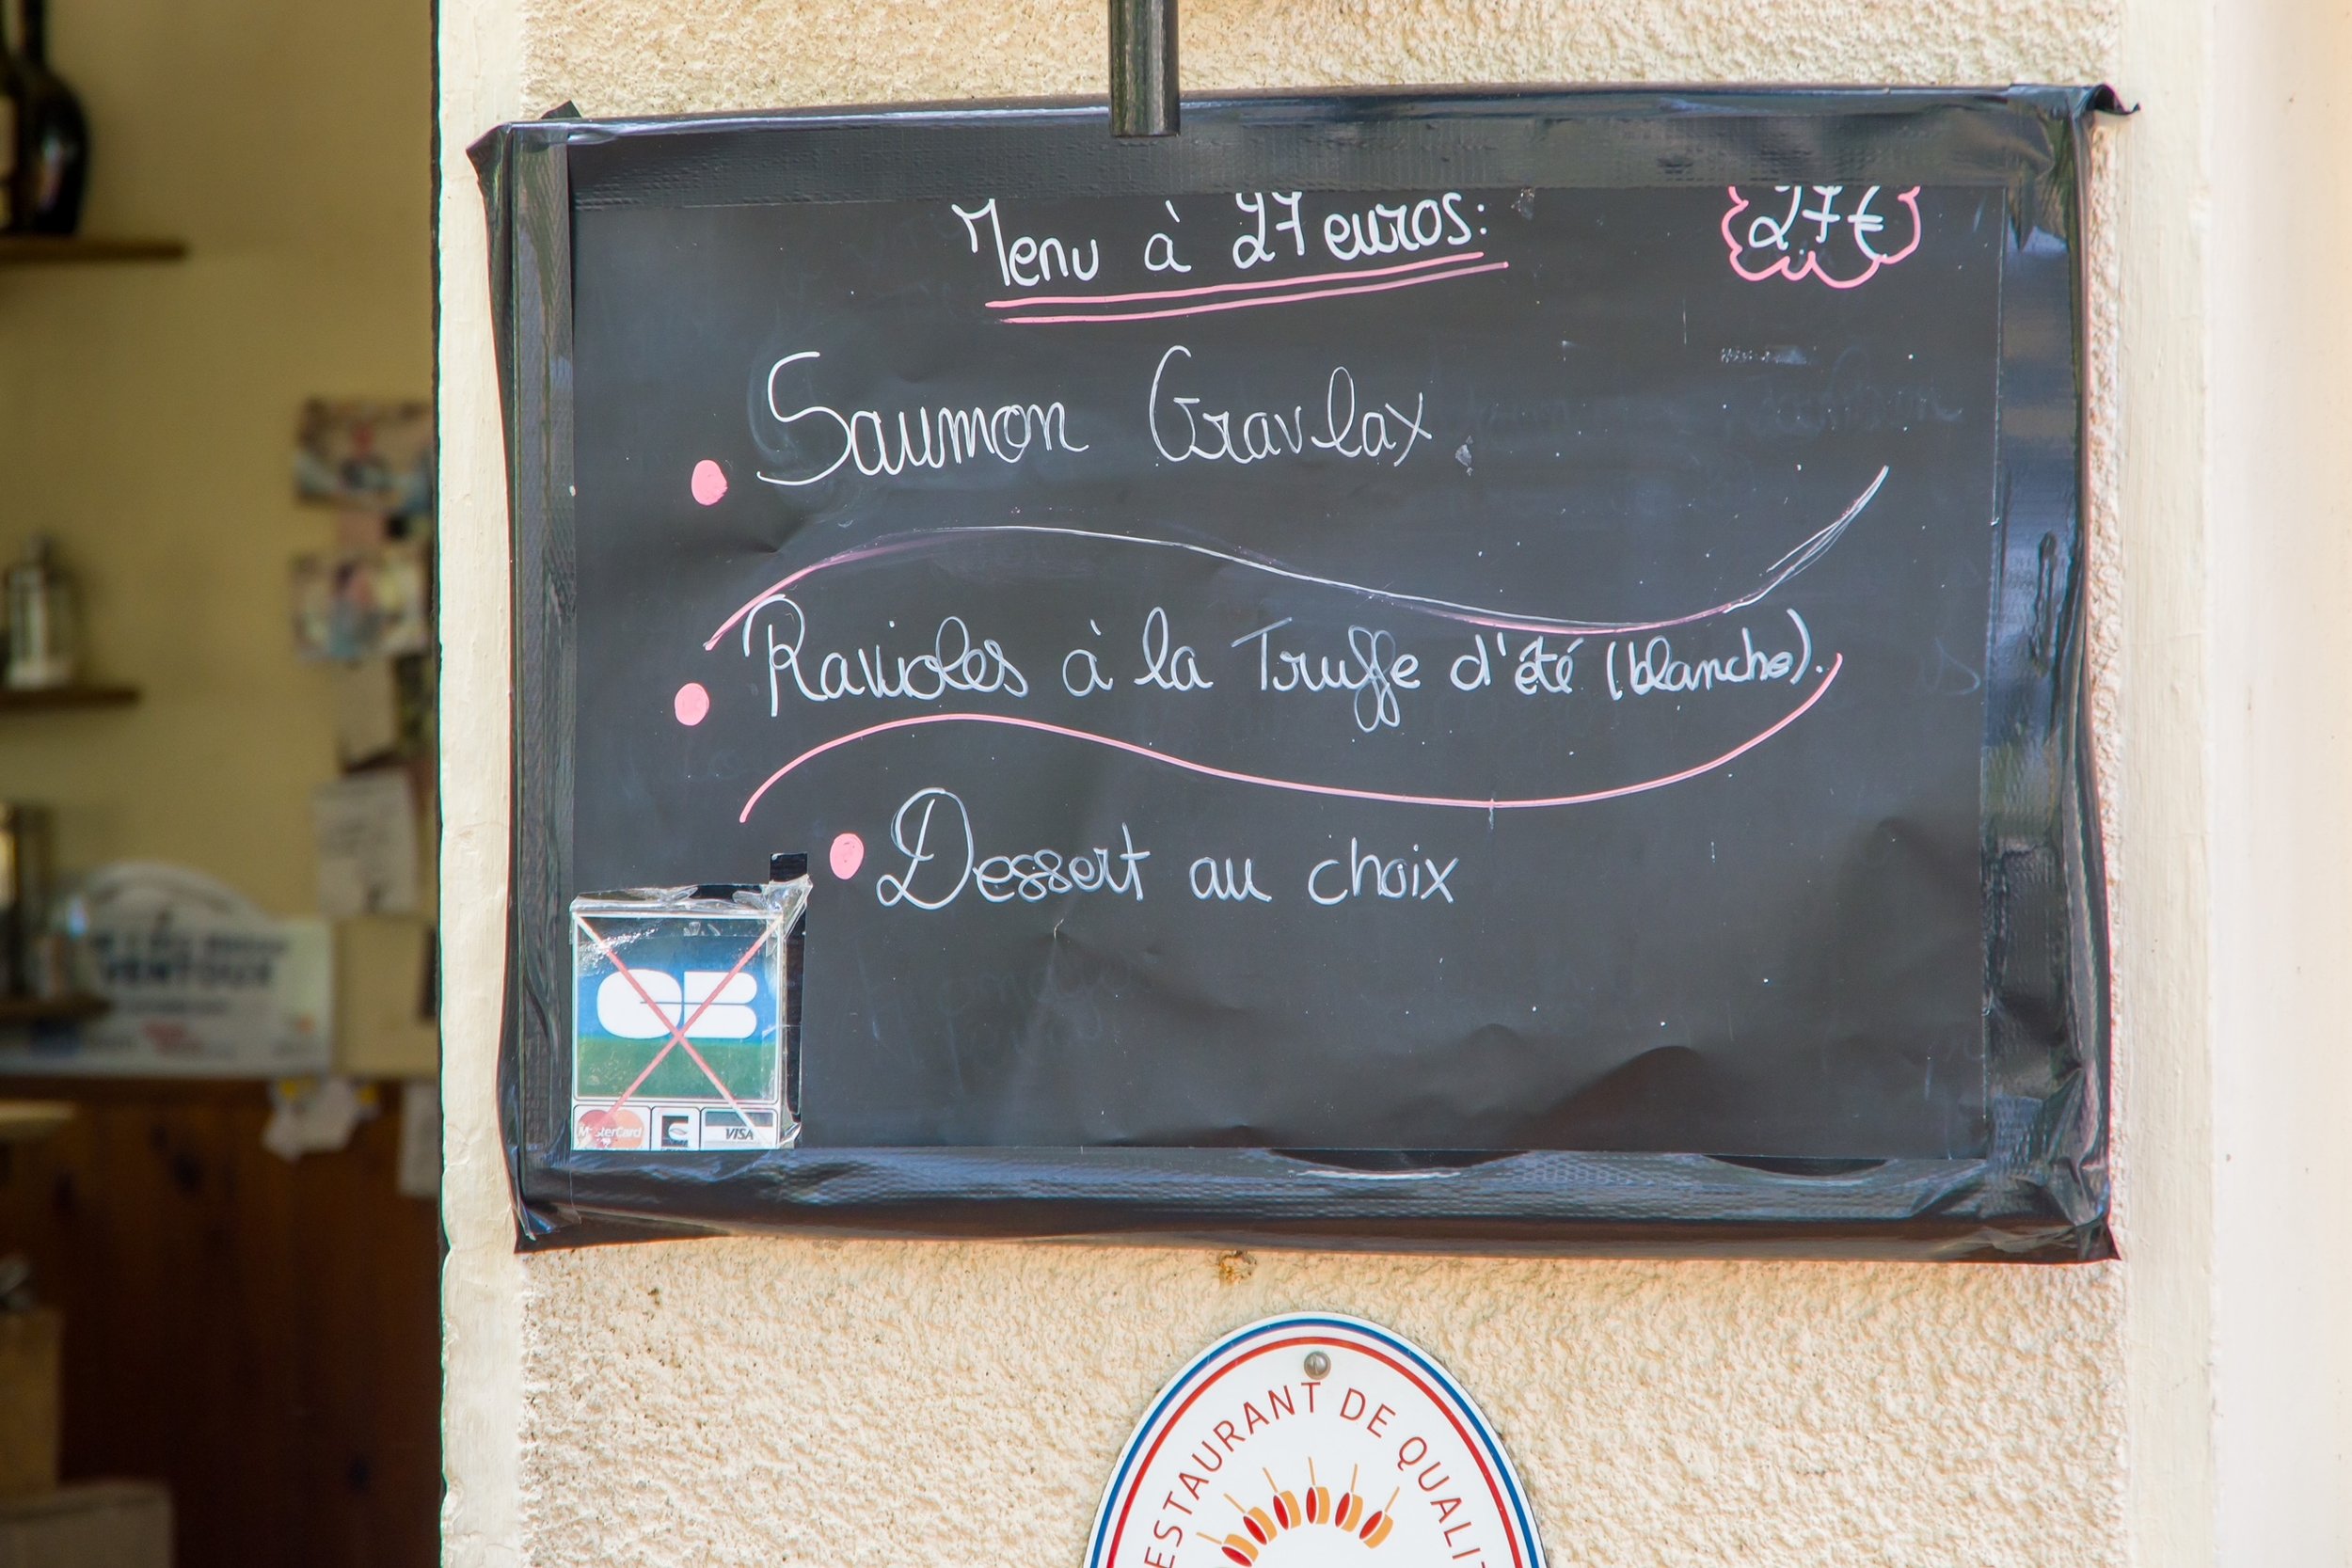 Menu à 27 euros:
27€
Saumon Gravlax
Ravioles à la Truffe d'été (blanche).
Dessert au choix
CB
MasterCard
VISA
VENTOUX
RESTAURANT DE QUALIT